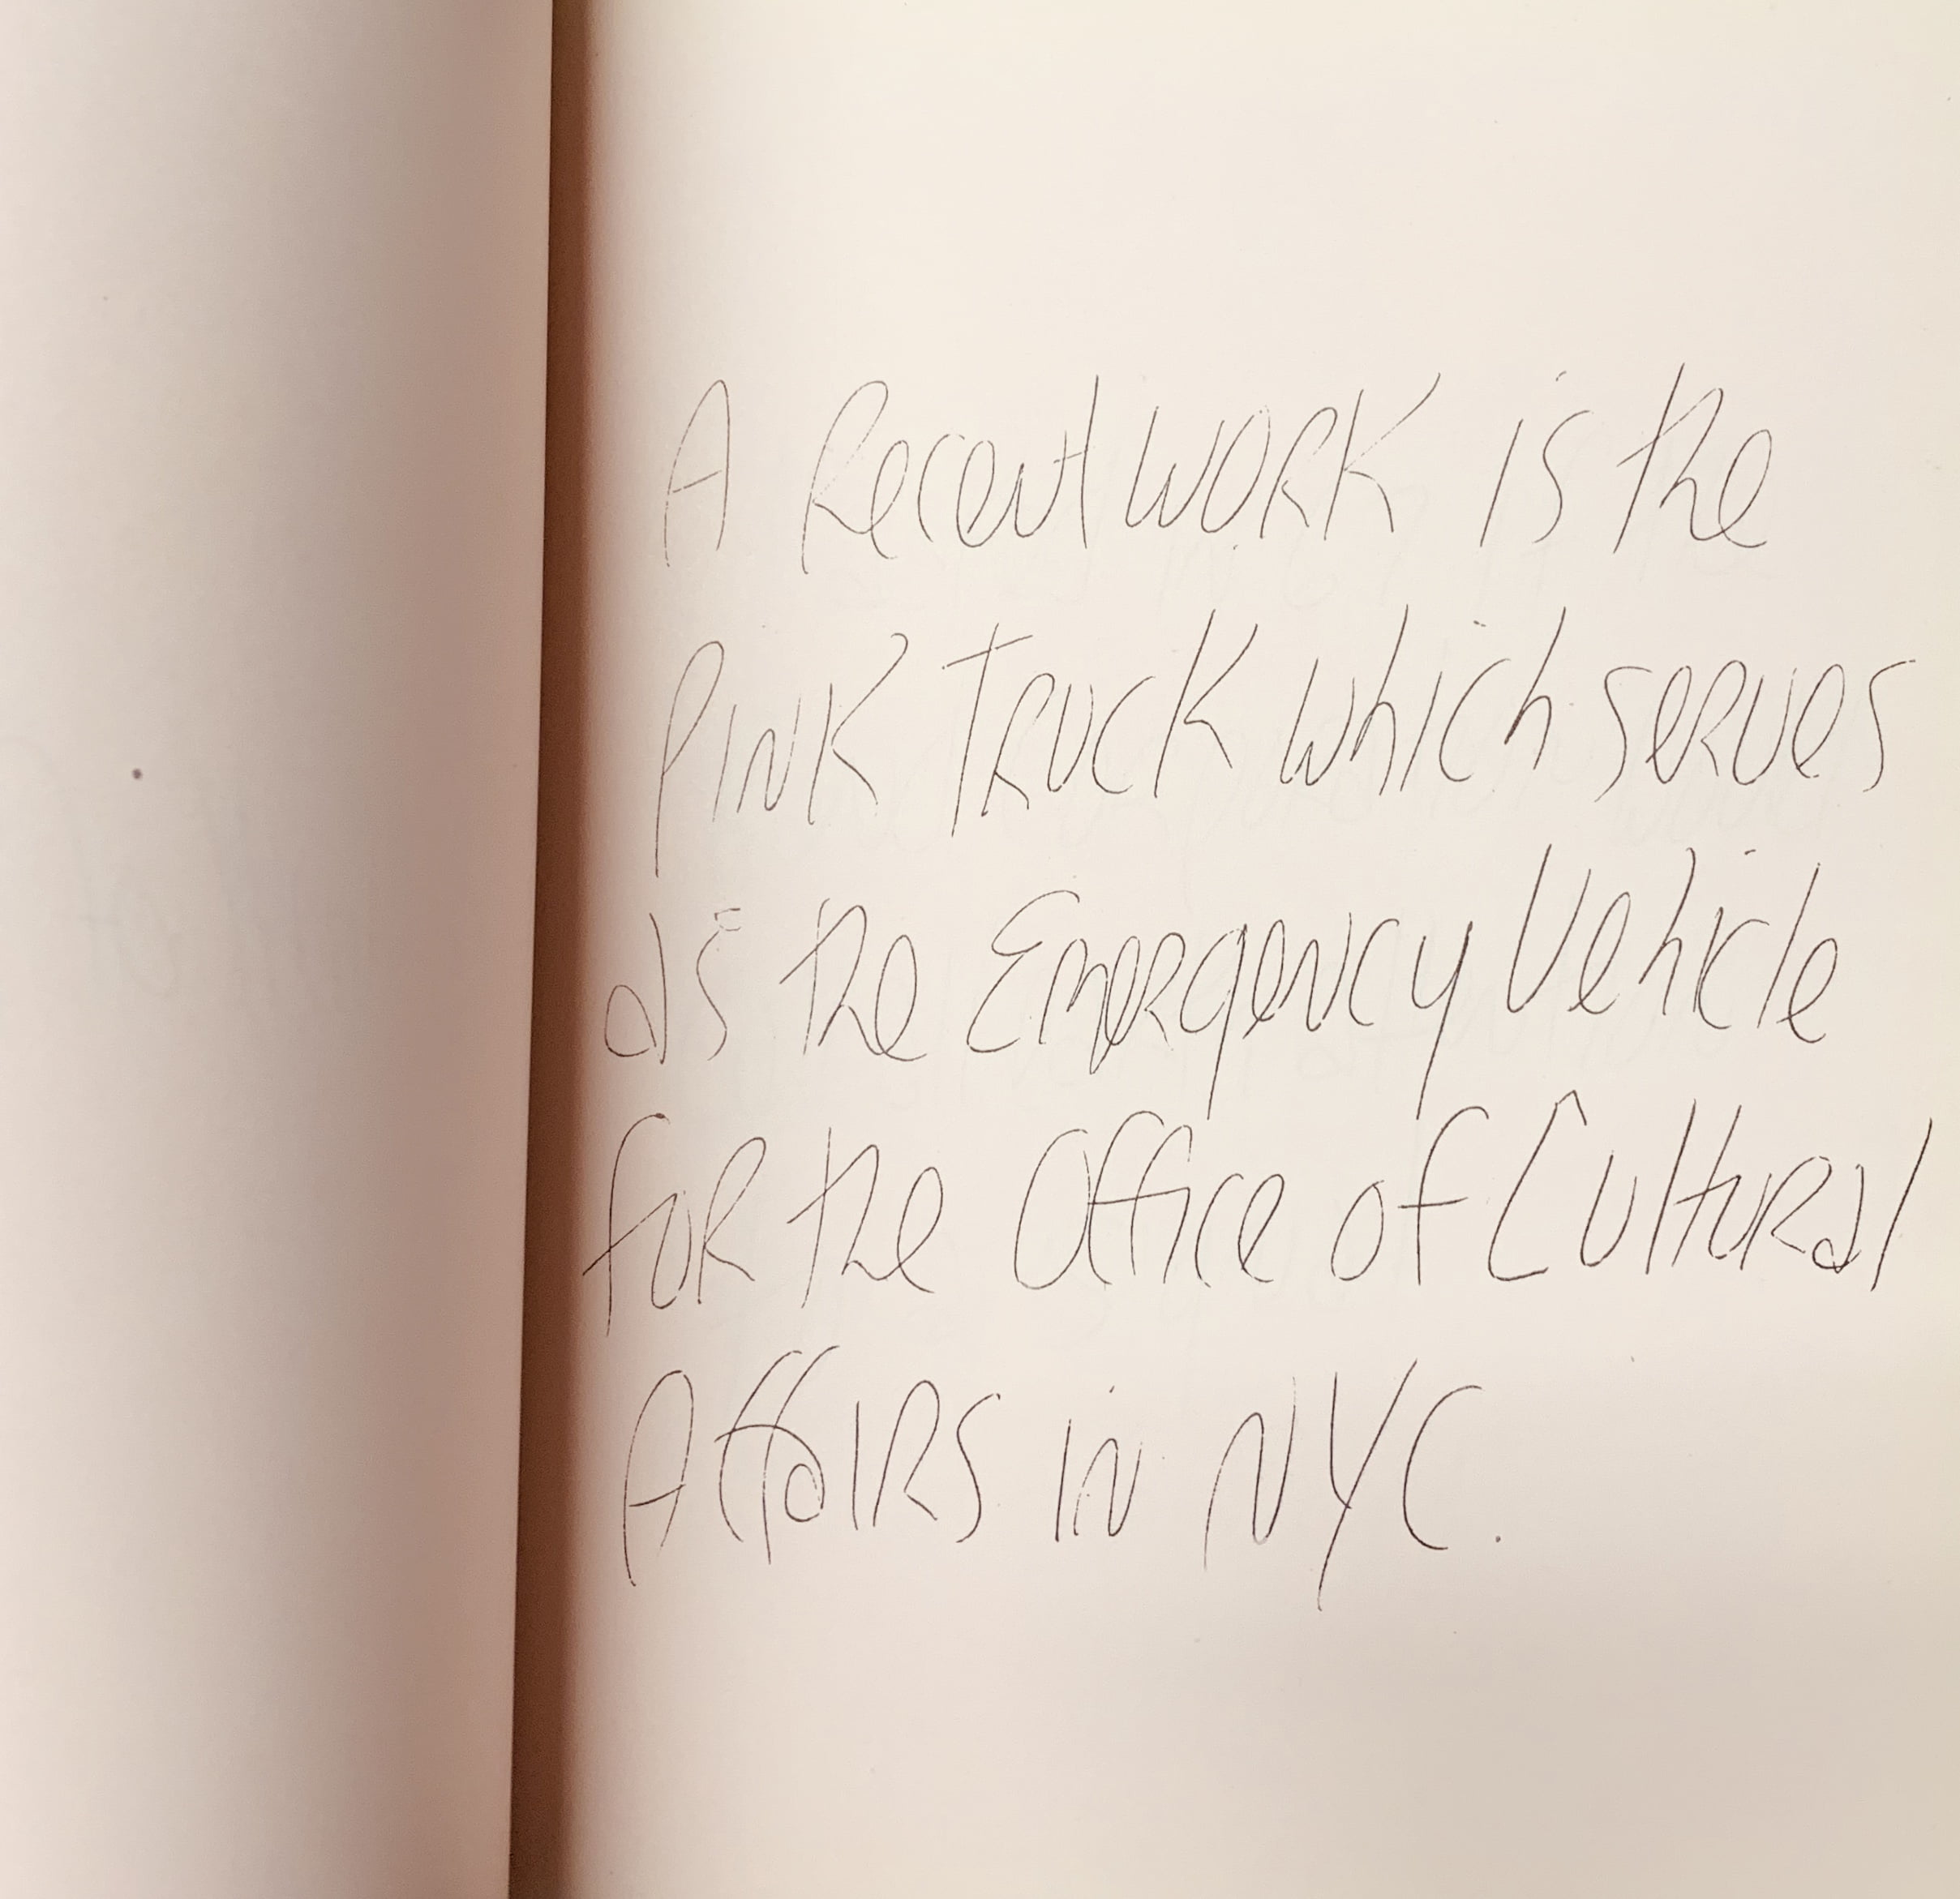 A Recent work is the
Pink Truck which serves
as the Emergency Vehicle
for the Office of Cultural
Affairs in NYC.